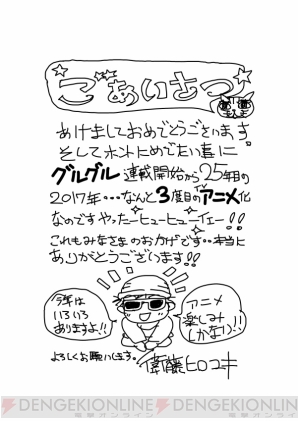 ごあいさつ
あけましておめでとうございます。
そしてホントにめでたい事に
グルグル 連載開始から25年目の
2017年…なんと3度目のアニメ化
なのですやったーヒューヒューイエー!!
これもみなさまのおかげです…本当に
ありがとうございます!!
今年は
いろいろ
ありますよ!!
アニメ
楽しみ
しかない!!
よろしくお願いします。
衛藤ヒロユキ
DENGEKIONLINE
電撃オンライン
DENGEKIONLINE
電撃オンライン